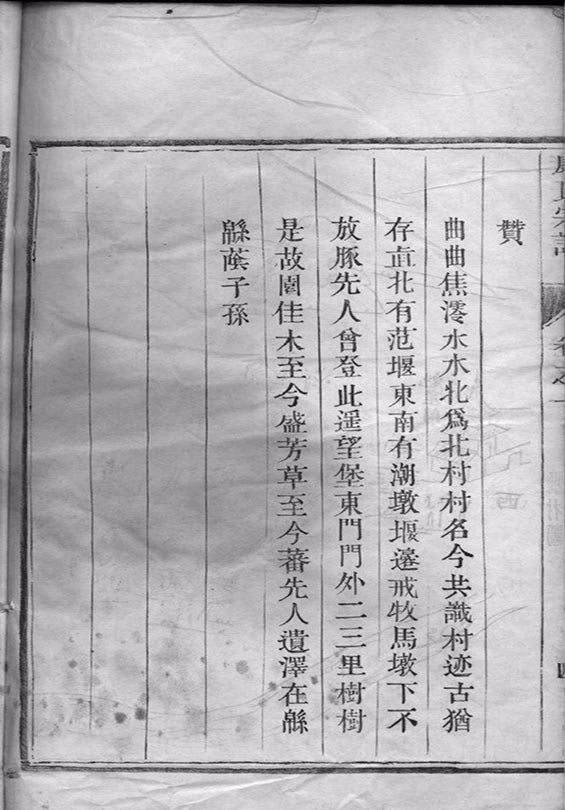 贊
曲曲焦澪水水北爲北村村名今共識村迹古猶
存直北有范堰東南有潮墩堰邊戒牧馬墩下不
放豚先人曾登此遥望堡東門門外二三里樹樹
是故園佳木至今盛芳草至今蕃先人遺澤在緜
緜蔭子孫